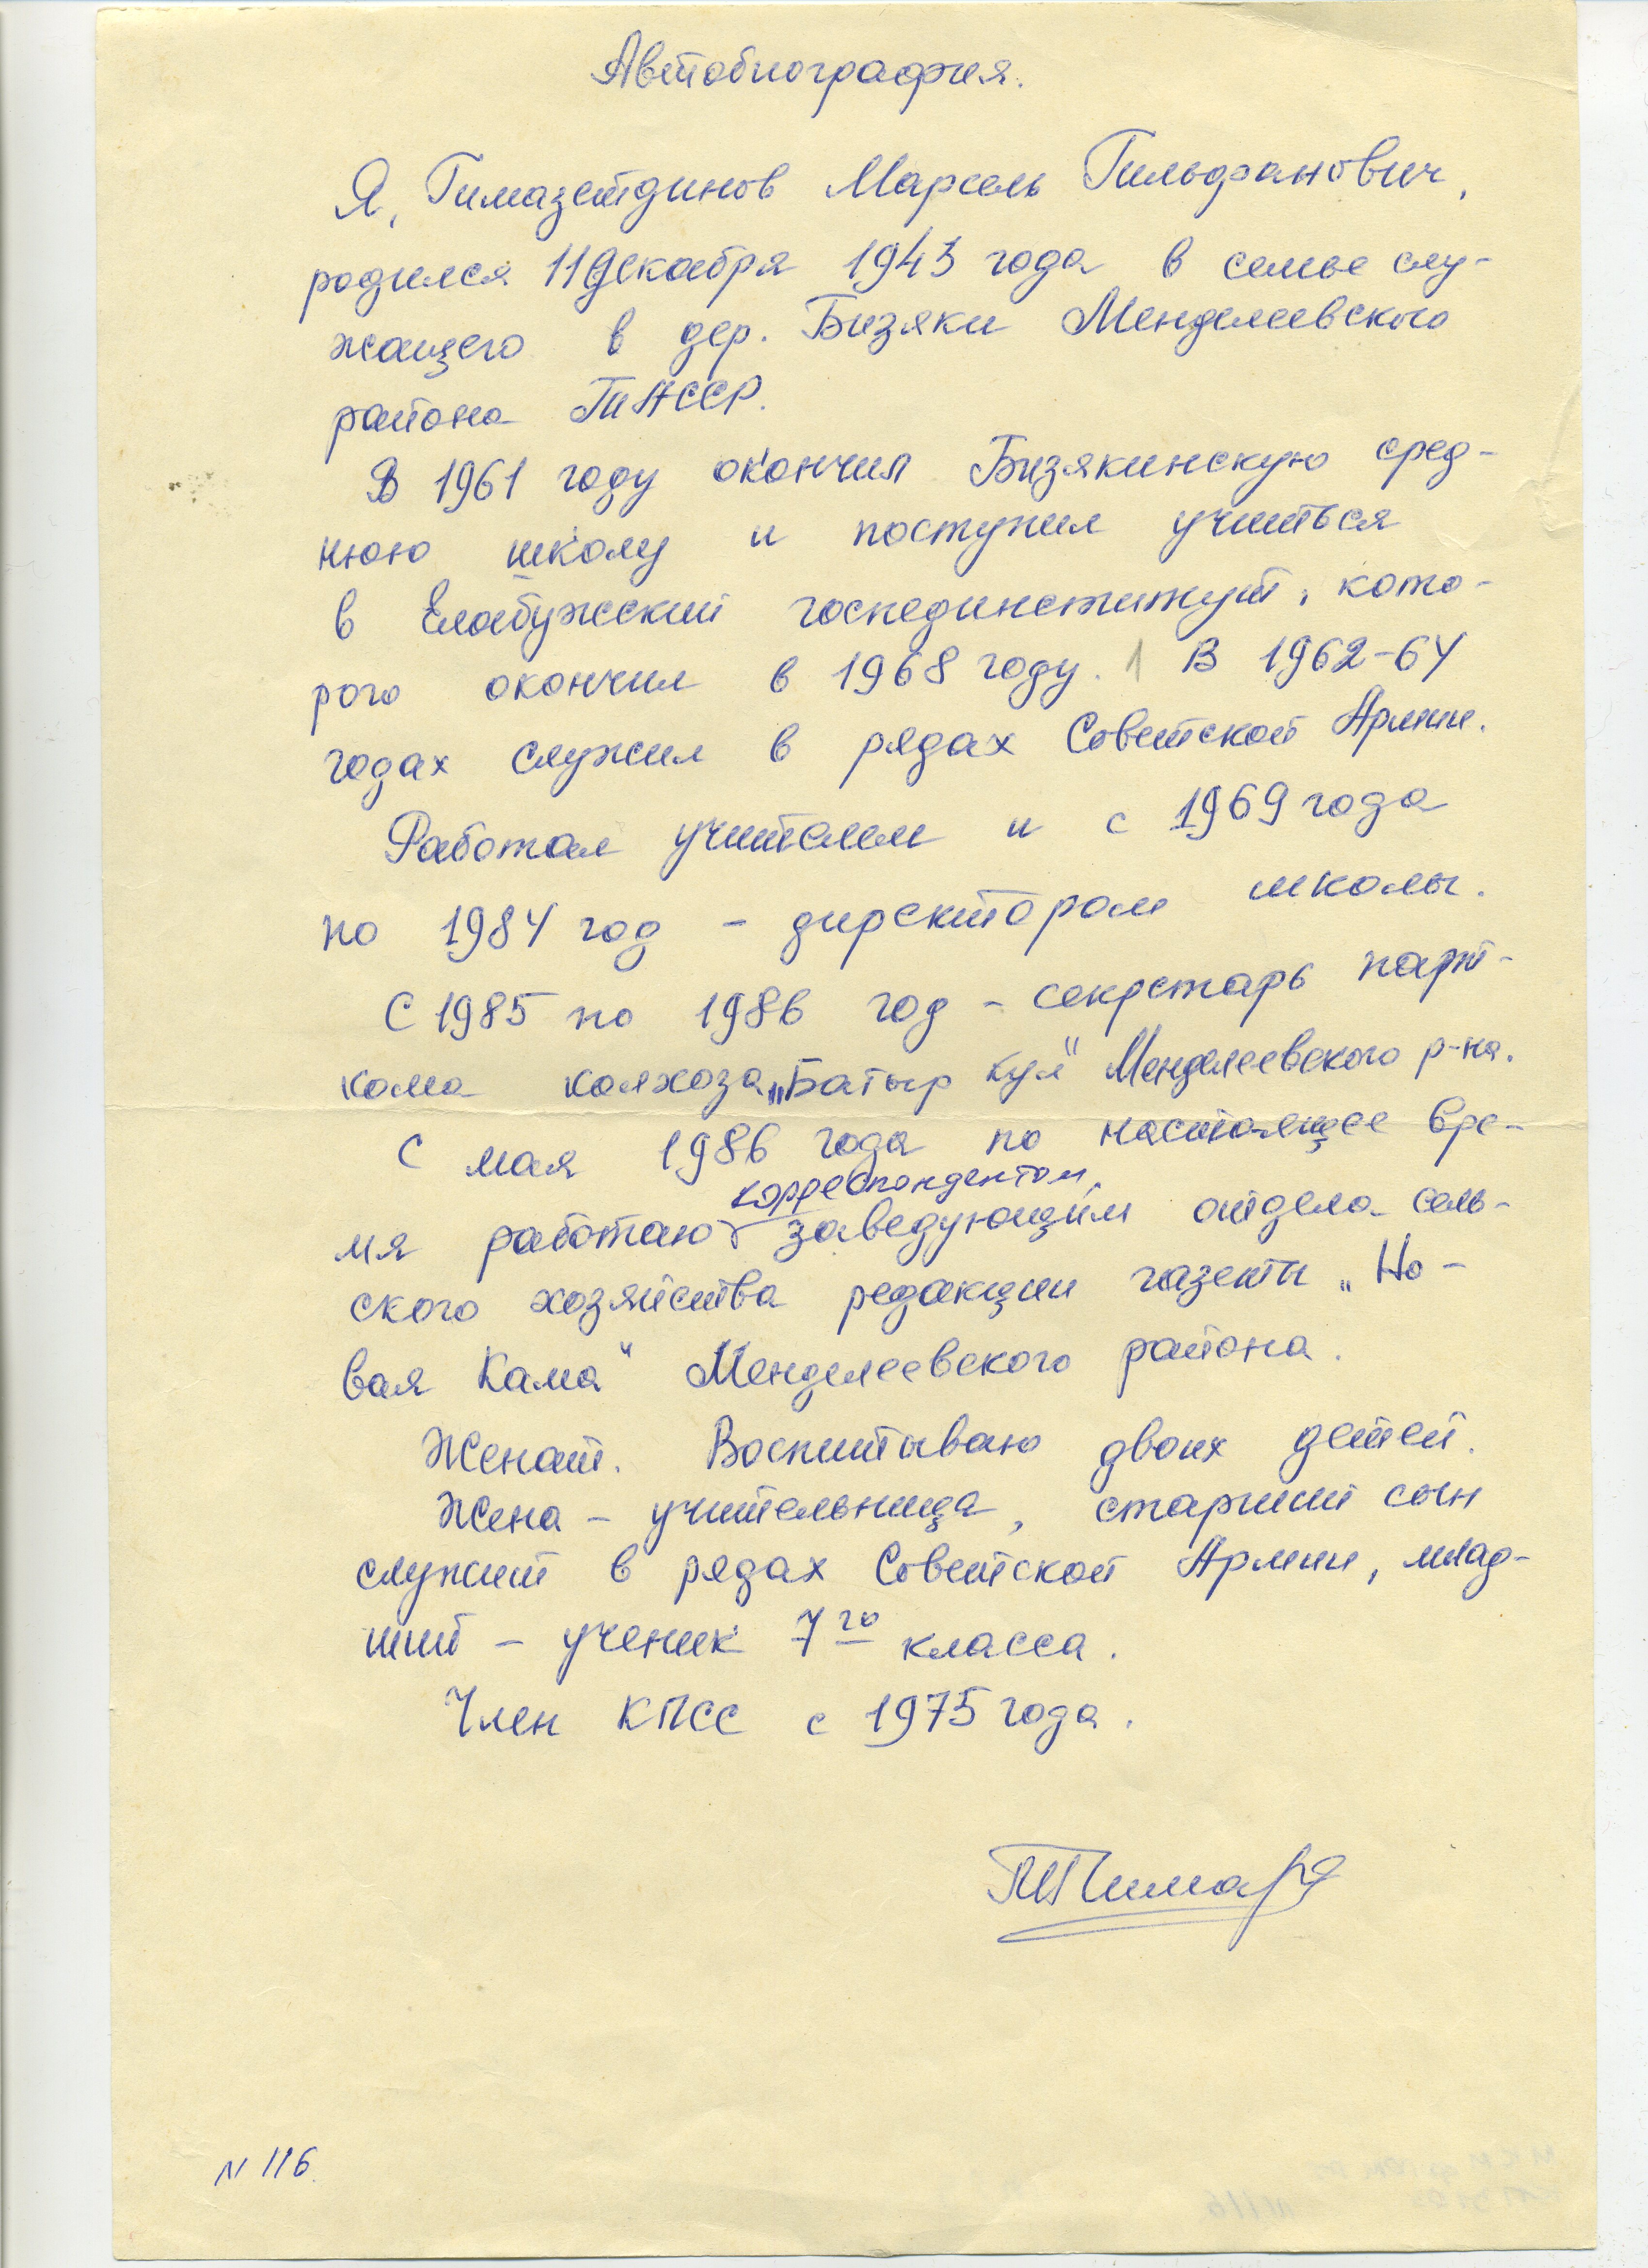 Автобиография.
Я, Гимазетдинов Марсель Гильфанович,
родился 11 декабря 1943 года в семье слу-
жащего в дер. Бизяки Менделеевского
района ТАССР.
В 1961 году окончил Бизякинскую сред-
нюю школу и поступил учиться
в Елабужский госпединститут, кото-
рого окончил в 1968 году. В 1962-64
годах служил в рядах Советской Армии.
Работал учителем и с 1969 года
по 1984 год - директором школы.
С 1985 по 1986 год - секретарь парт-
кома колхоза „Батыр Кул" Менделеевского р-на.
С мая 1986 года по настоящее вре-
корреспондентом,
мя работаю заведующим отдела сель-
ского хозяйства редакции газеты „Но-
вая Кама" Менделеевского района.
Женат. Воспитываю двоих детей.
Жена - учительница, старший сын
служит в рядах Советской Армии, млад-
ший - ученик 7го класса.
Член КПСС с 1975 года.
N 116.